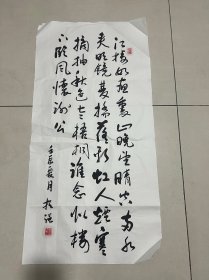 江城如画裏山晚望晴空两水
夹明镜雙橋落彩虹人煙寒
橘柚秋色老梧桐誰念北樓
上临風懷谢公
壬辰夏月